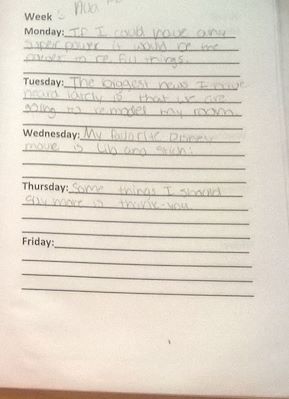 Week
Monday: If I could have any
super power it would be the
power to re fill things.
Tuesday: The biggest news I have
heard lately is that we are
going to remodel my room.
Wednesday: My favorite Disney
movie is Lilo and Stich.
Thursday: Some things I should
say more is thank-you.
Friday: